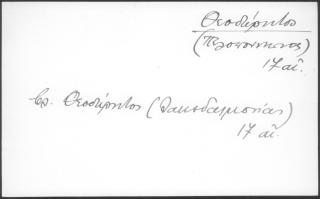 Θεοδώρητος
(Πελοπόννησος)
17 αἰ.
Ἐρ. Θεοδώρητος (Λακεδαιμονίας)
17 αἰ.